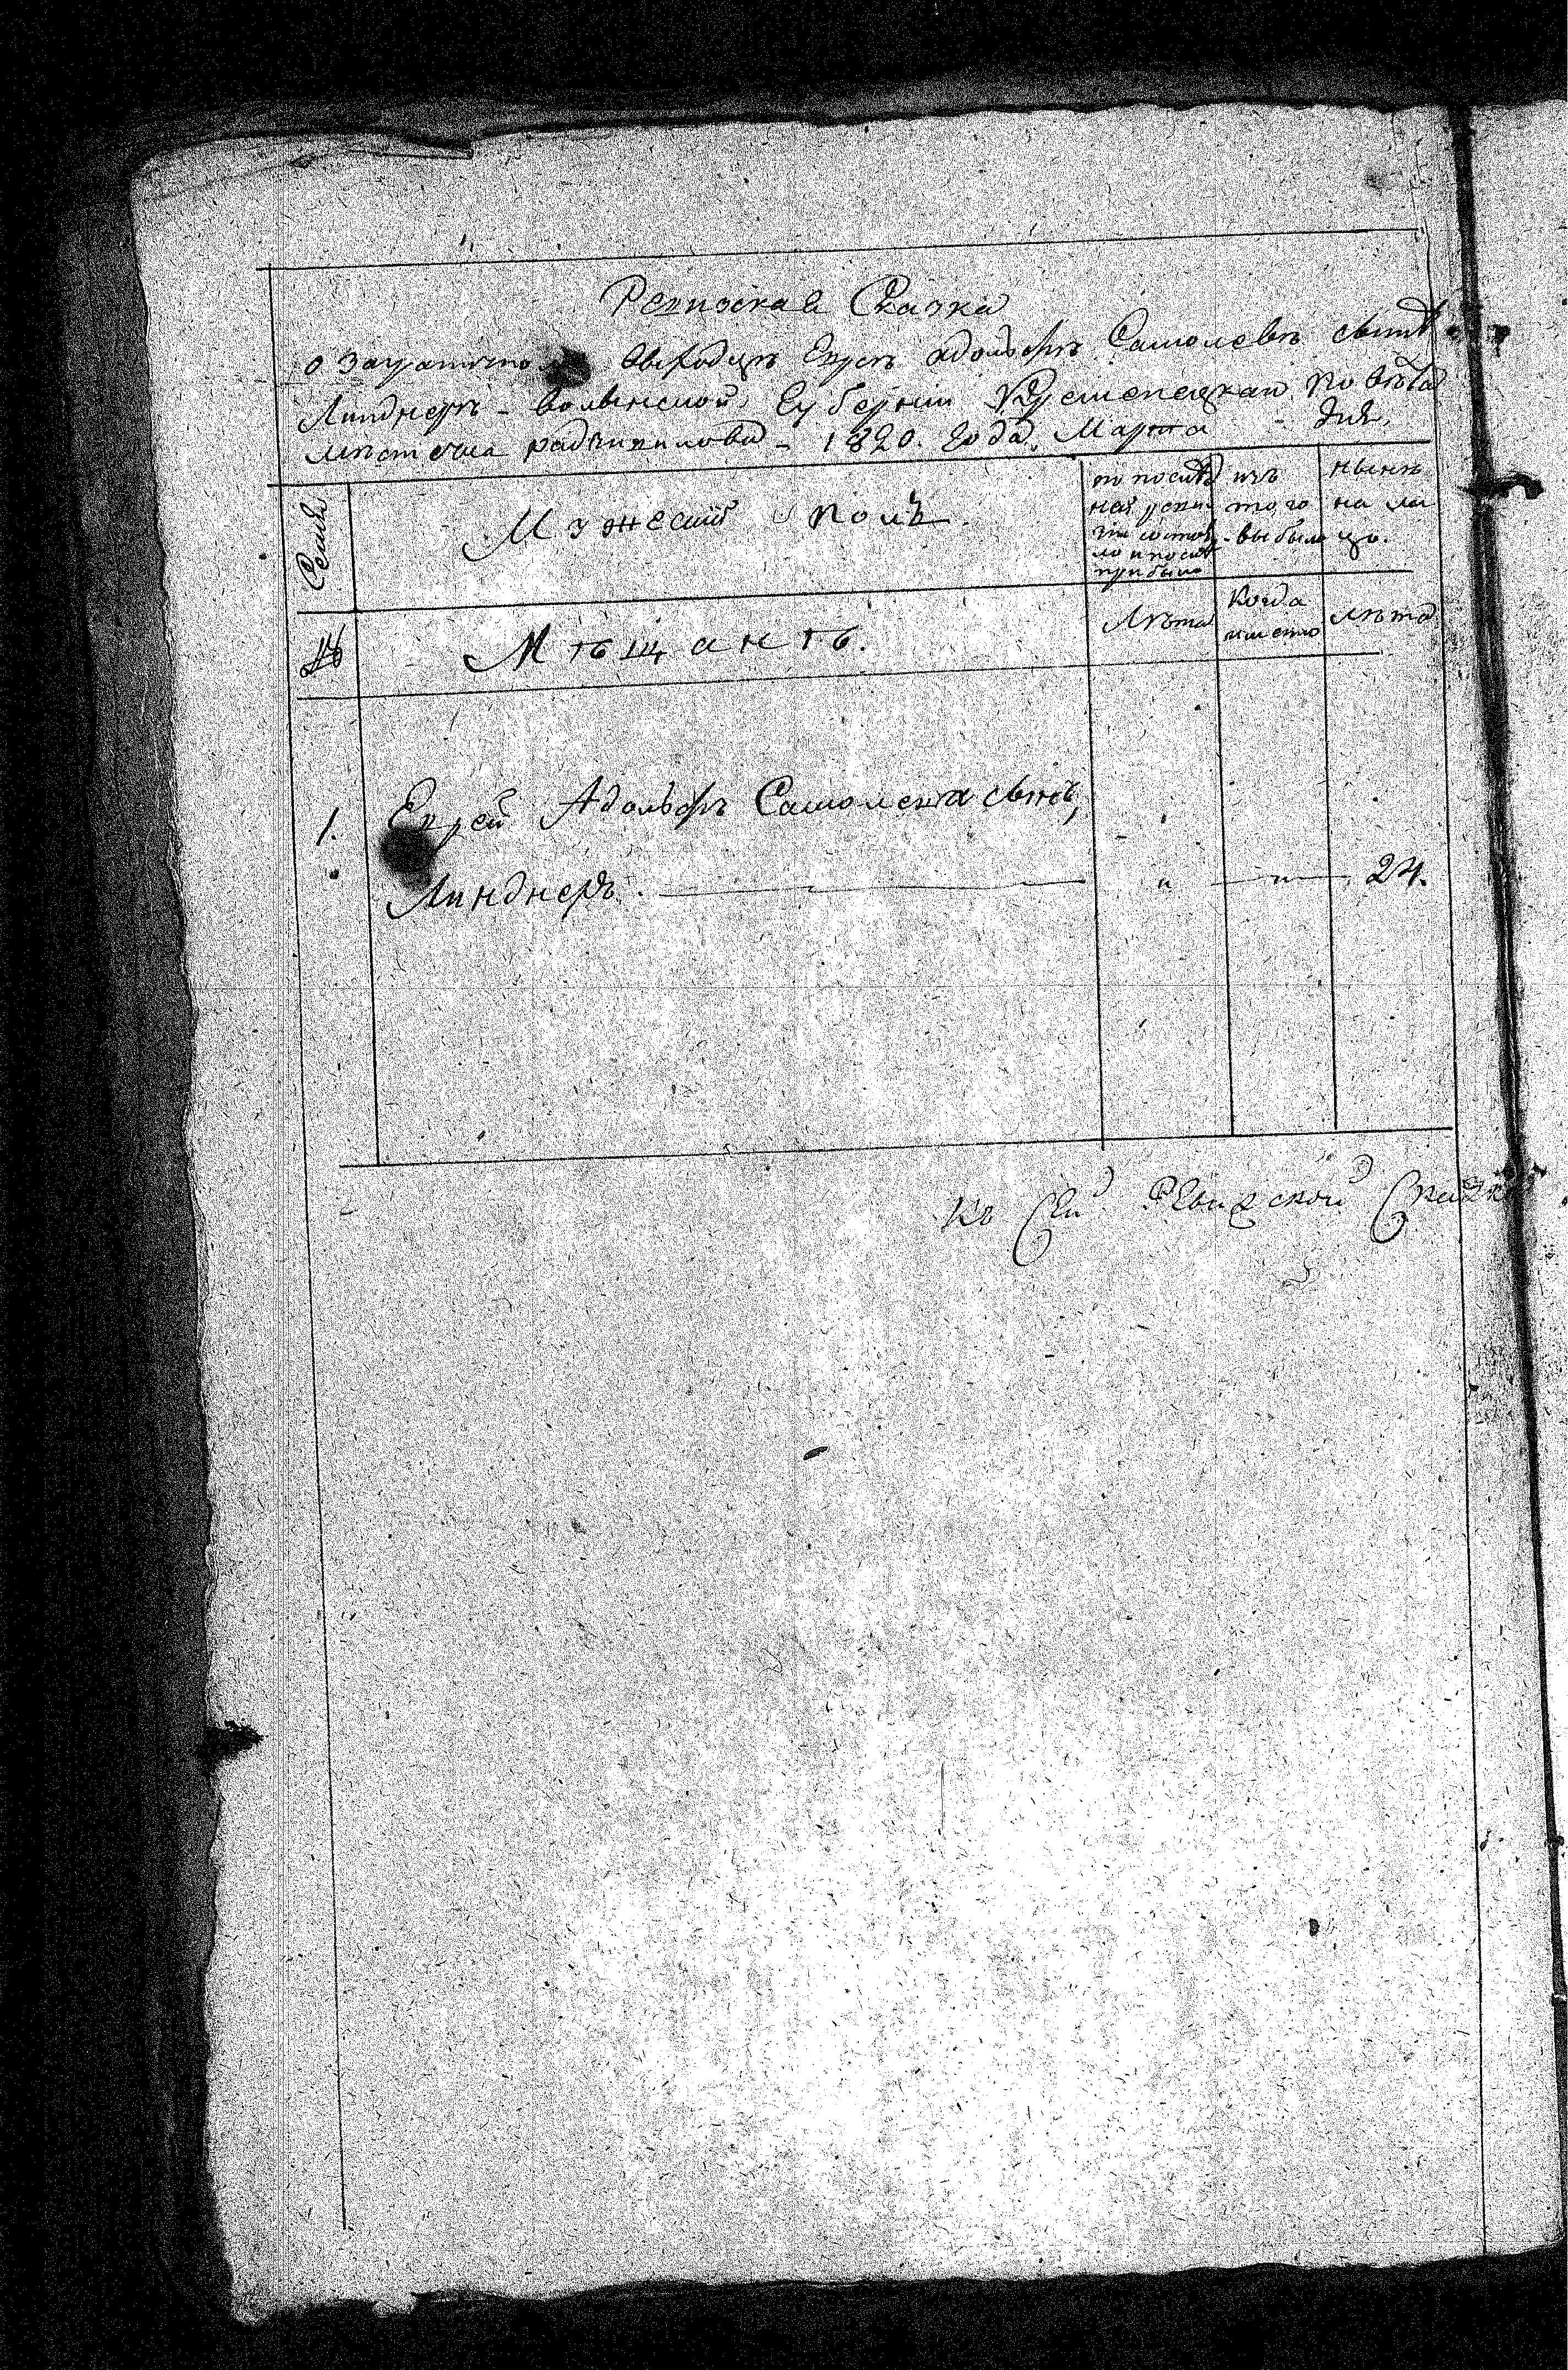 Ревизская Сказка
о загранично выходцѣ Евреѣ Адольфѣ Самолевѣ сынѣ
Линднеръ - Волынской Губерніи Кременецкаго Повѣта
мѣстечка Радзивилова - 1820. Года. Марта дня,
Семьи
Мужескій полъ.
по послѣд
ней реви
зіи состоя
ло и послѣ
прибыло
изъ
того
выбыло
нынѣ
на ли
цо.
№
Мѣщанѣ.
Лѣта
Когда
именно
лѣта
1. Еврей Адольфъ Самолевъ сынъ,
Линднеръ. " " 24.
Къ Сей Ревизской Сказкѣ